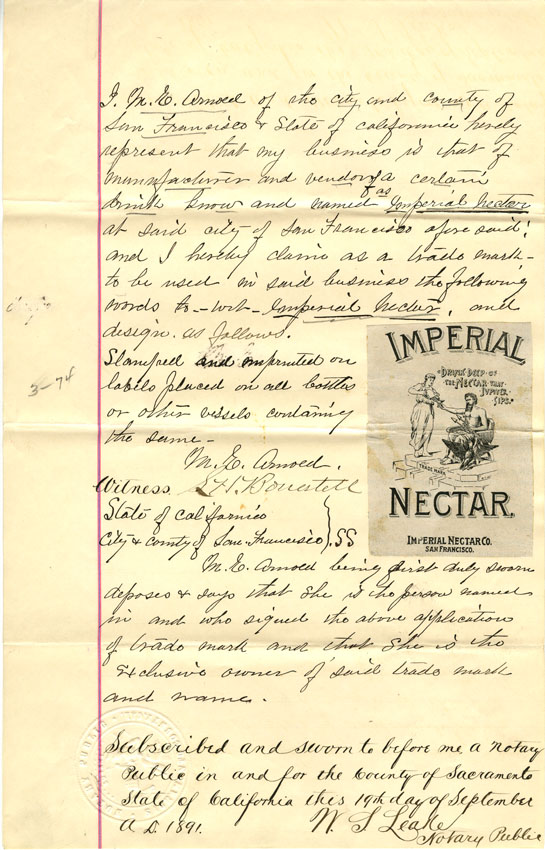 I, M. E. Arnold of the city and county of
San Francisco & State of california hereby
represent that my business is that of
manufacturer and vendor of a certain
drink know and named as Imperial Nectar
at said city of San Francisco afore said;
and I hereby claim as a trade mark-
to be used in said business the following
words to-wit- Imperial Nectar, and
design as follows.
Stamped and imprinted on
labels placed on all bottles
or other vessels containing
the same-
M. E. Arnold.
Witness
State of California
City & county of San Francisco } SS
IMPERIAL
"DRINK DEEP OF
THE NECTAR THAT
JUPITER
SIPS."
TRADE MARK
NECTAR.
IMPERIAL NECTAR CO.
SAN FRANCISCO.
3-74
M. E. Arnold being first duly sworn
deposes & says that she is the person named
in and who signed the above application
of trade mark and that she is the
Exclusive owner of said trade mark
and name.
Subscribed and sworn to before me a Notary
Public in and for the County of Sacramento
State of California this 19th day of September
A D. 1891.
W. S. Leake
Notary Public